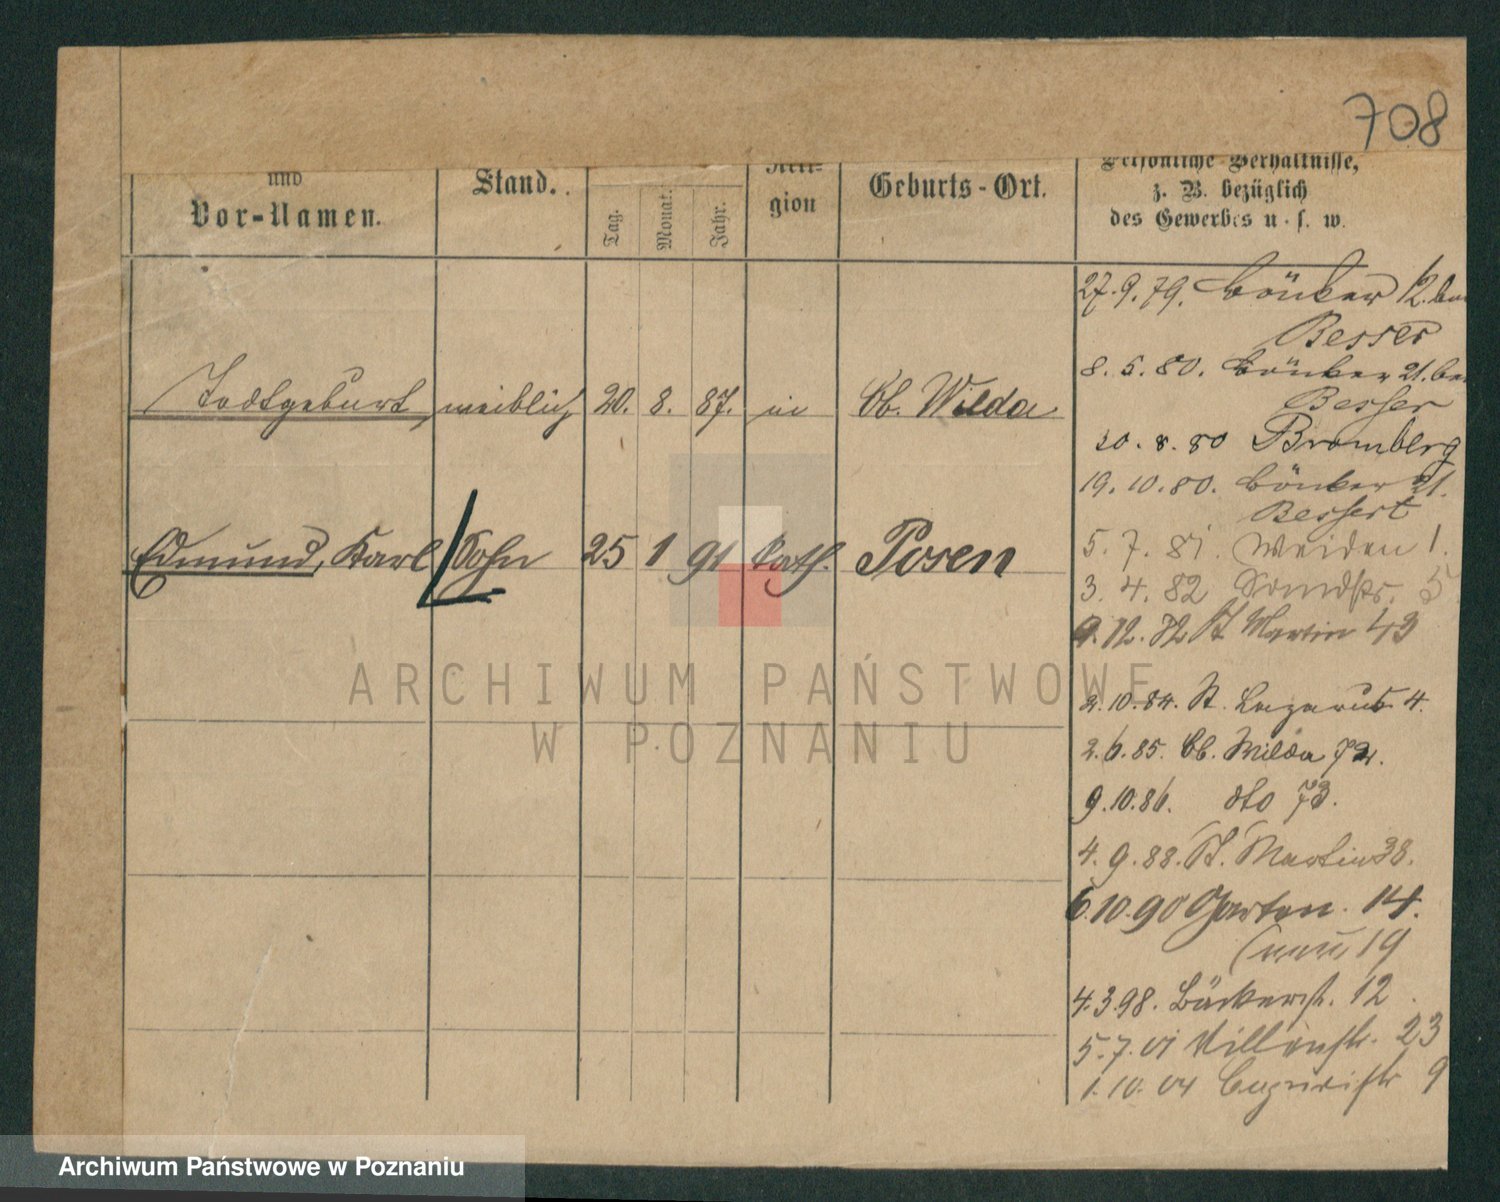 708
und
Vor-Namen.
Stand.
Tag.
Monat.
Jahr.
Reli-
gion
Geburts-Ort.
Persönliche Verhältnisse,
z. B. bezüglich
des Gewerbes u. s. w.
27.9.79. 12. bei
Besser
8. 5. 80. 21. bei
Besser
Todtgeburt, weiblich 20. 8. 87. in Ob. Wilda
20. 8. 80 Bromberg
19. 10. 80. 21.
Bessert
Edmund, Karl Sohn 25 1 91 kath. Posen
5. 7. 81. Weiden 1.
3. 4. 82 5
9. 12. 82 St Martin 43
2. 10. 84. St. Lazarus 4.
2. 6. 85. Ob. Wilda 72.
9. 10. 86. dto 73.
4. 9. 88. St. Martin 38.
6. 10. 90 Garten. 14.
(neu 19
4. 3. 98. Bäckerstr. 12.
5. 7. 01 Villenstr. 23
1. 10. 04 9
ARCHIWUM PAŃSTWOWE
W POZNANIU
Archiwum Państwowe w Poznaniu